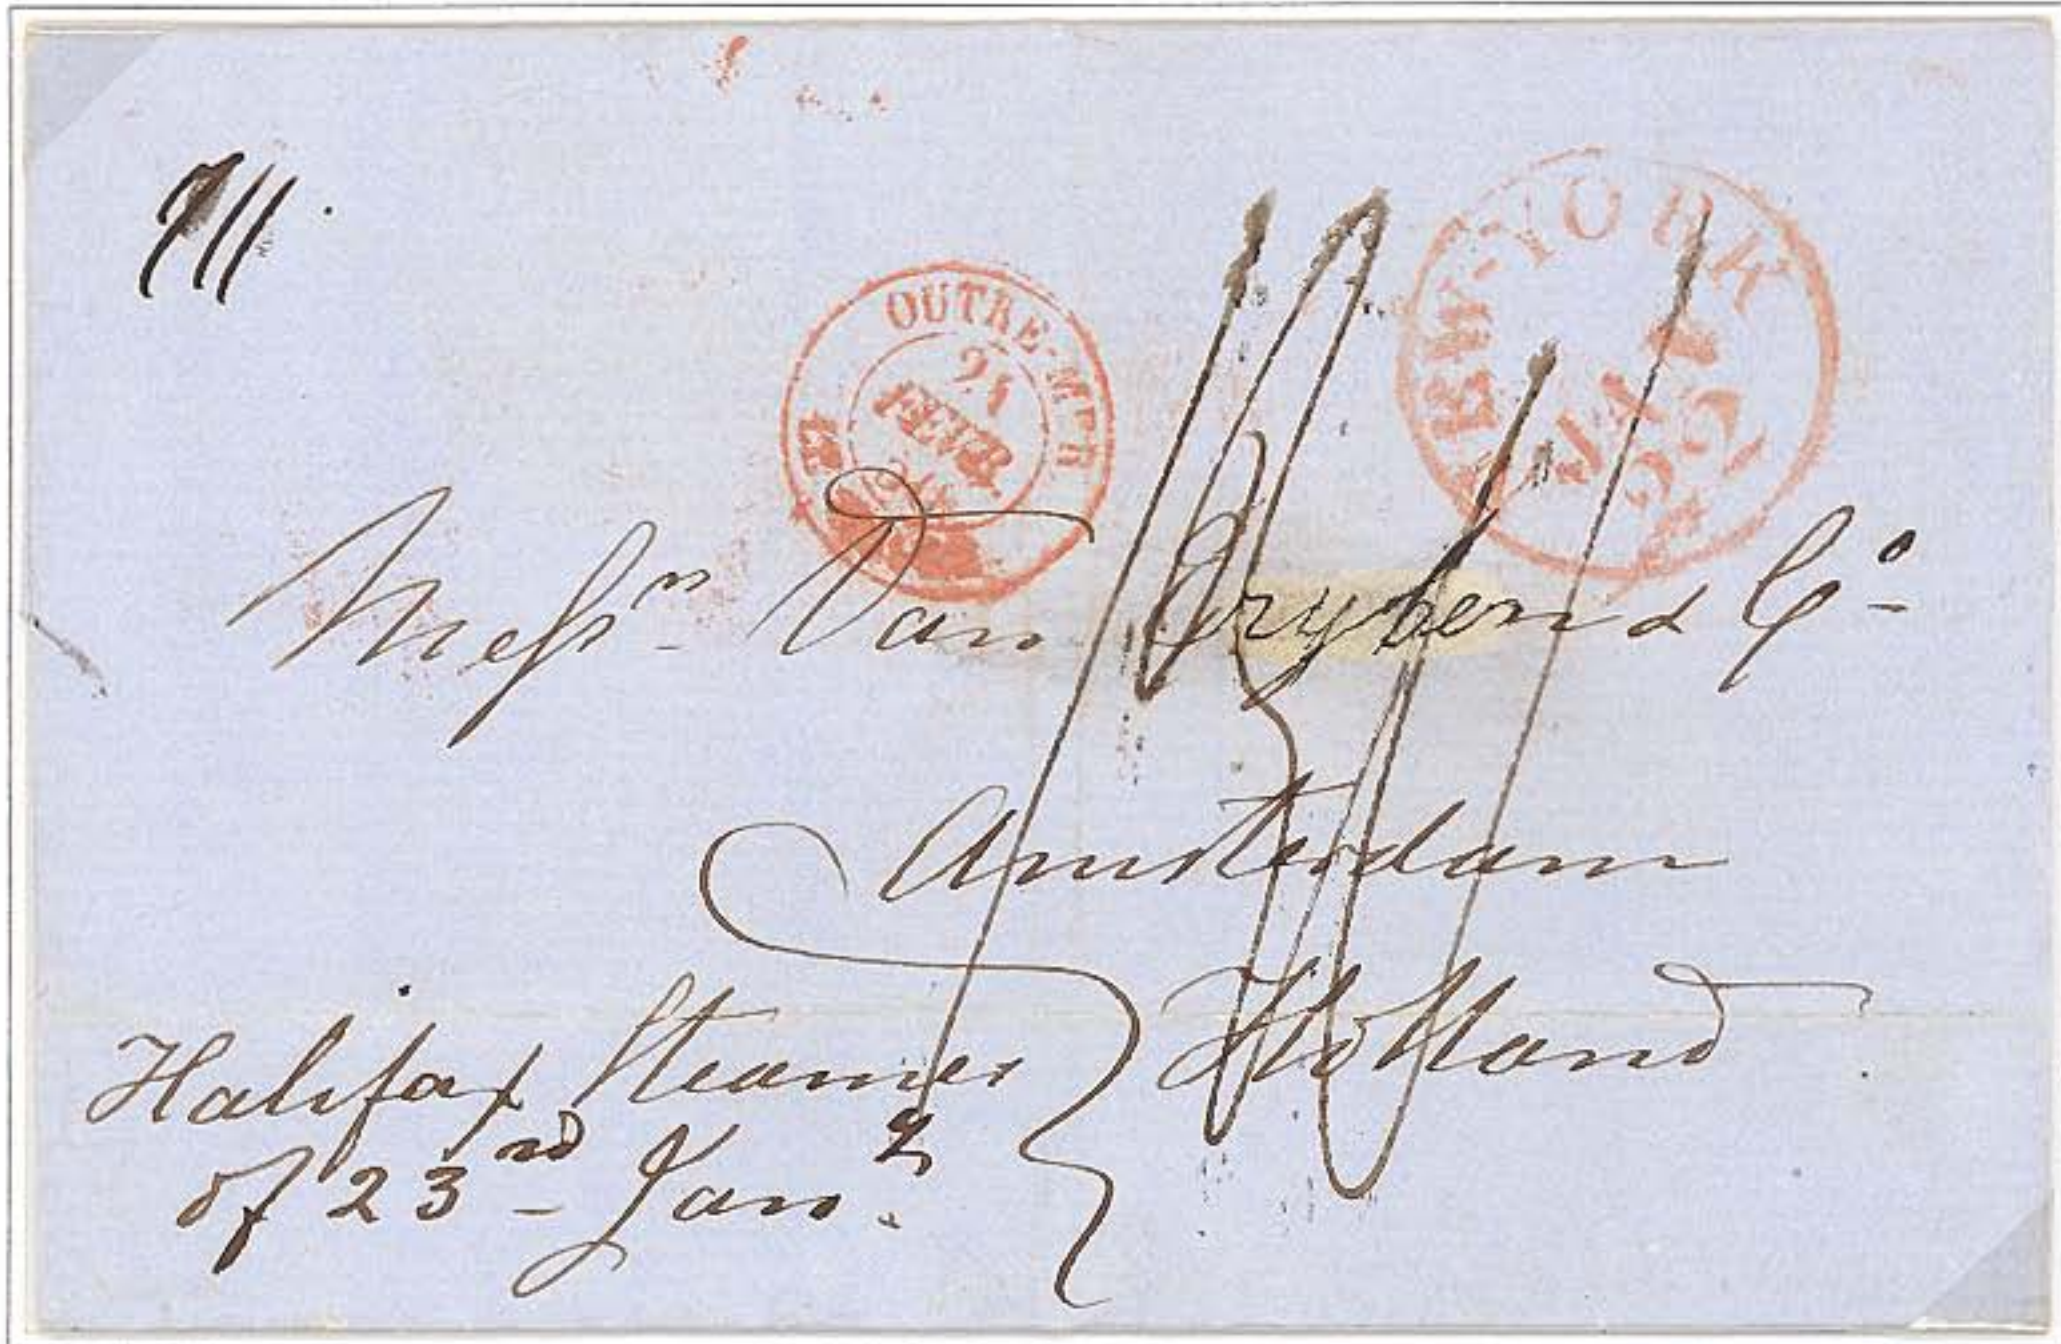 OUTRE-MER
FEVR.
NEW-YORK
JAN
22
Messrs. Van & Co
Amsterdam
Holland
Halifax Steamer
of 23rd Jany.